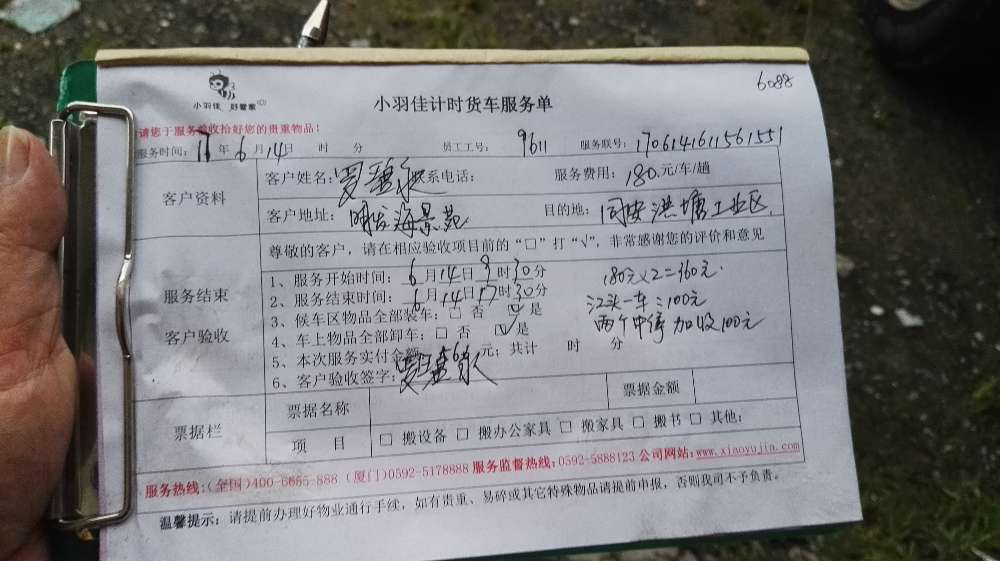 6088
小羽佳 好管家
小羽佳计时货车服务单
请您于服务验收拾好您的贵重物品!
服务时间: 17年6月14日 时 分 员工工号: 9611 服务联号: 170614161156155 1
客户资料 客户姓名: 系电话: 服务费用: 180元/车/趟
客户地址: 明发海景苑 目的地: 同安洪塘工业区.
尊敬的客户,请在相应验收项目前的“□”打“√”,非常感谢您的评价和意见
服务结束
客户验收
1、服务开始时间: 6月14日 时30分 180元×2=360元.
2、服务结束时间: 6月14日17时30分
3、候车区物品全部装车: □ 否 √ 是 江头一车:100元
4、车上物品全部卸车: □ 否 √ 是 两个中停加收100元
5、本次服务实付金额 元; 共计 时 分
6、客户验收签字:
票据栏 票据名称 票据金额
项 目 □ 搬设备 □ 搬办公家具 □ 搬家具 □ 搬书 □ 其他:
服务热线:(全国)400-6655-888 (厦门)0592-5178888 服务监督热线:0592-5888123 公司网站:www.xiaoyujia.com
温馨提示: 请提前办理好物业通行手续,如有贵重、易碎或其它特殊物品请提前申报,否则我司不予负责。